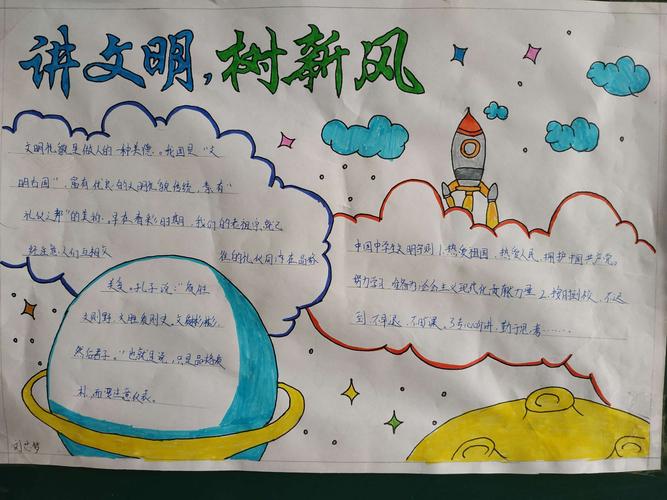 讲文明,树新风
文明礼貌是做人的一种美德。我国是"文
明古国",富有优良的文明礼貌传统,素有"
礼仪之邦"的美称。早在春秋时期,我们的老祖宗就已
人们与相交 的礼仪同内在品格
孔子说:"质胜
文则野,文胜质则史,文质彬彬,
然后君子。"也就是说,只是品格质
朴,而要注意仪表。
中国中学生文明守则 1.热爱祖国,热爱人民,拥护中国共产党。
努力学习 准备为社会主义现代化贡献力量 2.按时到校,不迟
到 不早退,不旷课。3.专心听讲,勤于思考......